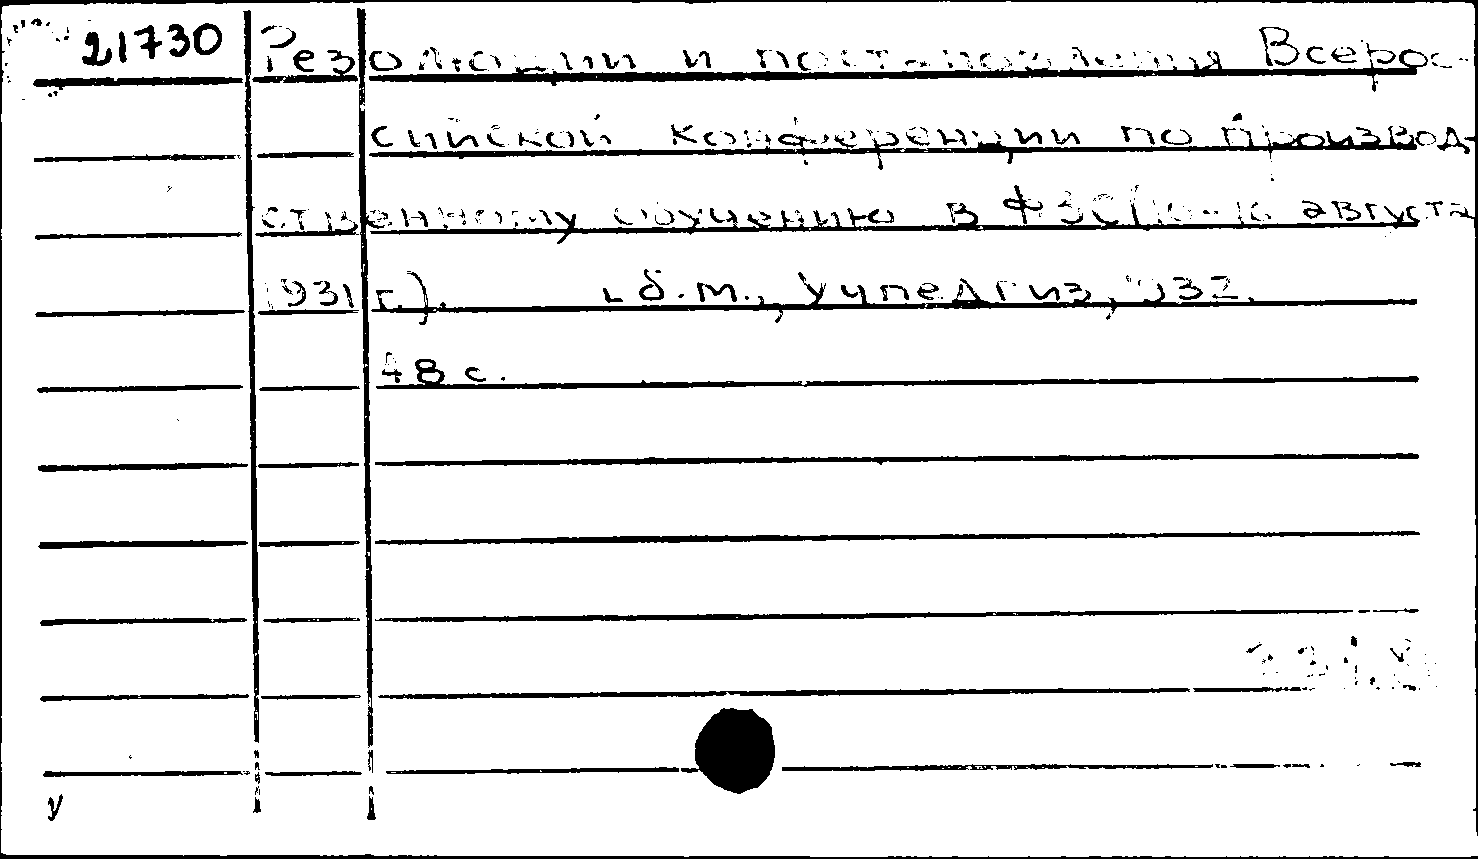 21730 Резолюции и постановления Всерос-
сийской конференции по производ-
ственному обучению в ФЗС (10-16 августа
1931 г.). [б.м., Учпедгиз, 1932.
48 с.
у